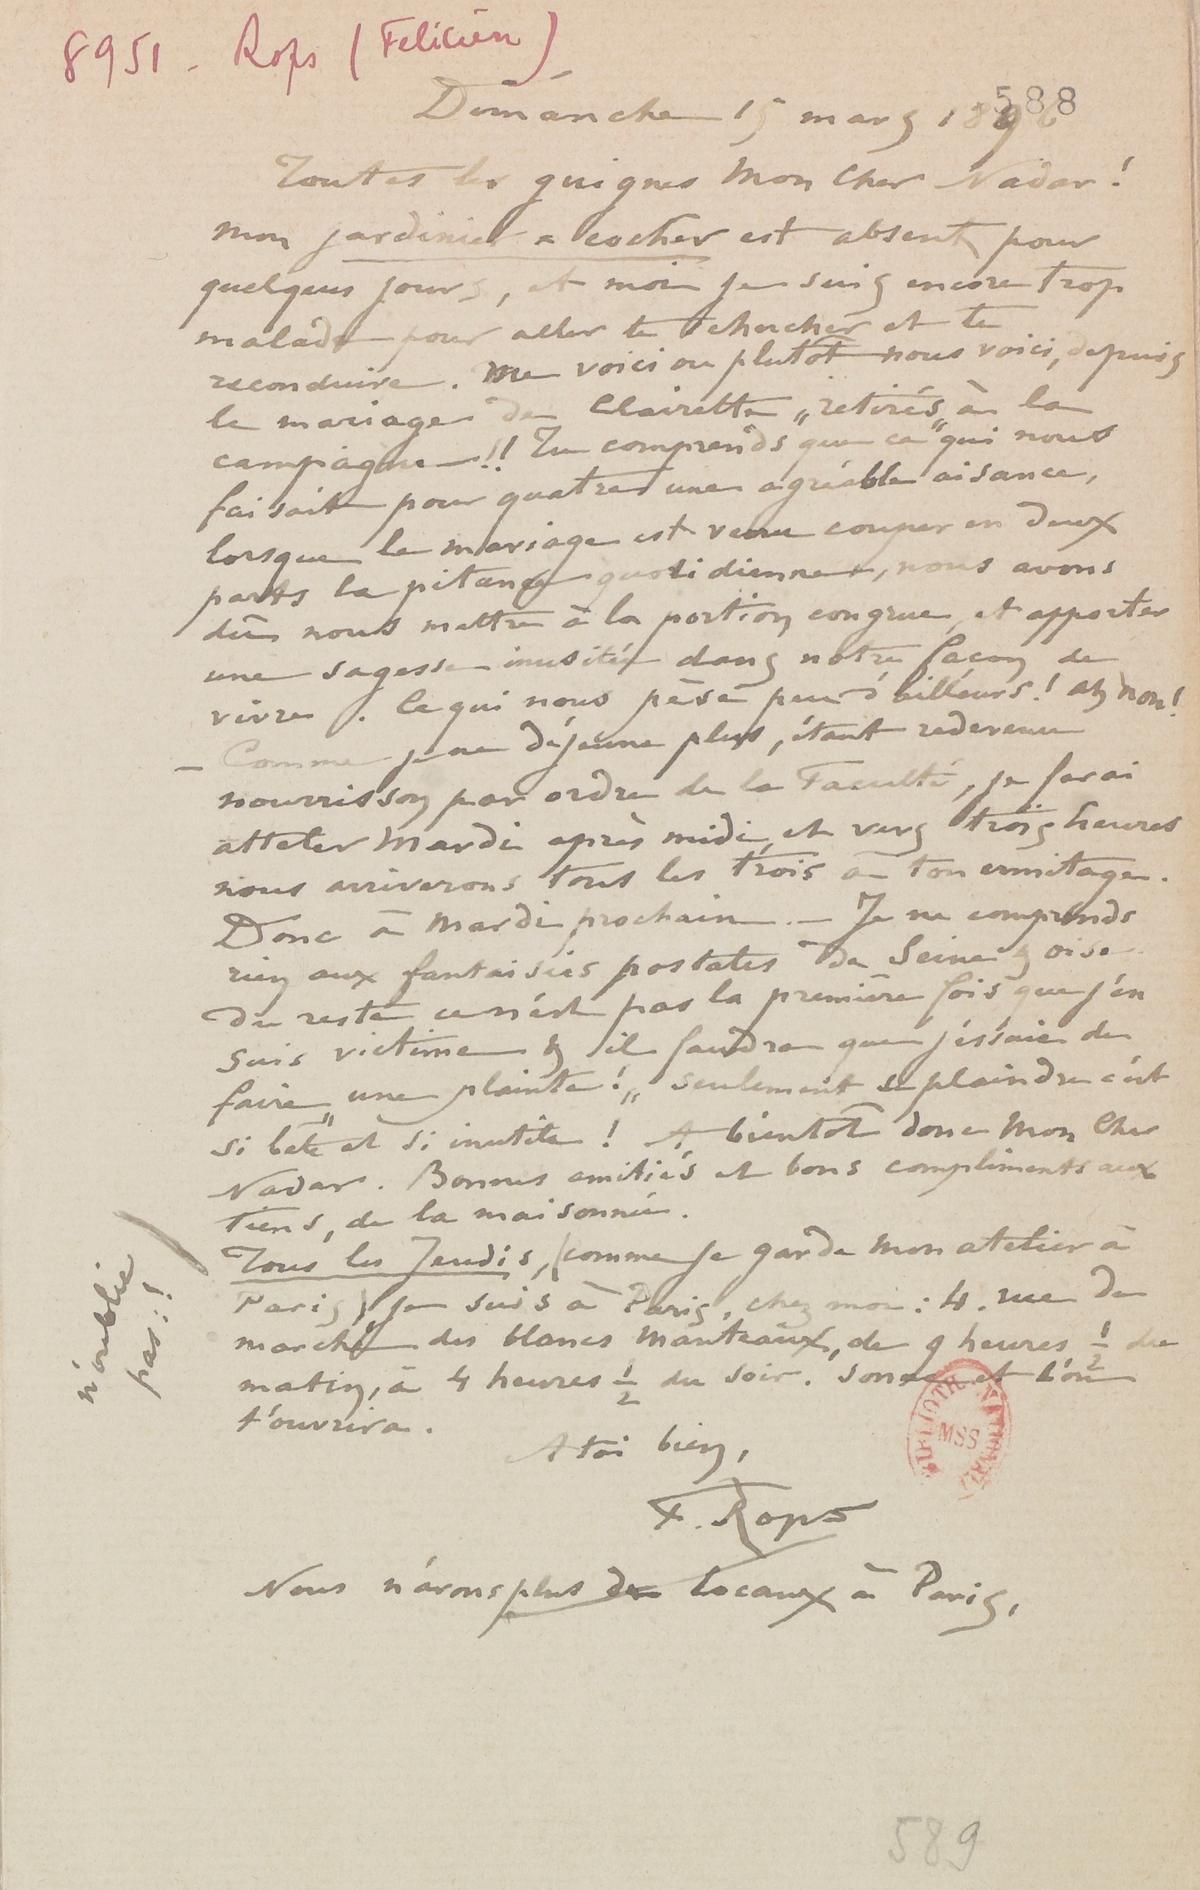 8951 - Rops (Félicien)
588
Dimanche 15 mars 1896
Toutes les guignes Mon Cher Nadar !
mon jardinier = cocher est absent pour
quelques jours, et moi je suis encore trop
malade pour aller te chercher et te
reconduire. Me voici ou plutôt nous voici, depuis
le mariage de Clairette „retirés„ à la
campagne !! Tu comprends que ce qui nous
faisait pour quatre une agréable aisance,
lorsque le mariage est venu couper en deux
parts la pitance quotidienne, nous avons
dû nous mettre à la portion congrue, et apporter
une sagesse inusitée dans notre façon de
vivre. Ce qui nous pèse peu d'ailleurs ! ah non !
– Comme je ne déjeune plus, étant redevenu
nourrisson par ordre de la Faculté, je ferai
atteler Mardi après midi, et vers trois heures
nous arriverons tous les trois à ton ermitage.
Donc à Mardi prochain. — Je ne comprends
rien aux fantaisies postales de Seine & Oise
du reste ce n'est pas la première fois que j'en
suis victime & il faudra que j'éssaie de
faire „une plainte !„ seulement se plaindre c'est
si bête et si inutile ! A bientôt donc Mon Cher
Nadar. Bonnes amitiés et bons compliments aux
tiens, de la maisonnée.
Tous les Jeudis, (comme je garde mon atelier à
Paris) je suis à Paris, chez moi : 4. rue du
marché des blancs Manteaux, de 9 heures 1/2 du
matin, à 4 heures 1/2 du soir. Sonne et l'on
t'ouvrira.
n'oublie
pas !!
A toi bien,
F. Rops
Nous n'avons plus de locaux à Paris,
BIBLIOTH. NATIONALE MSS
589